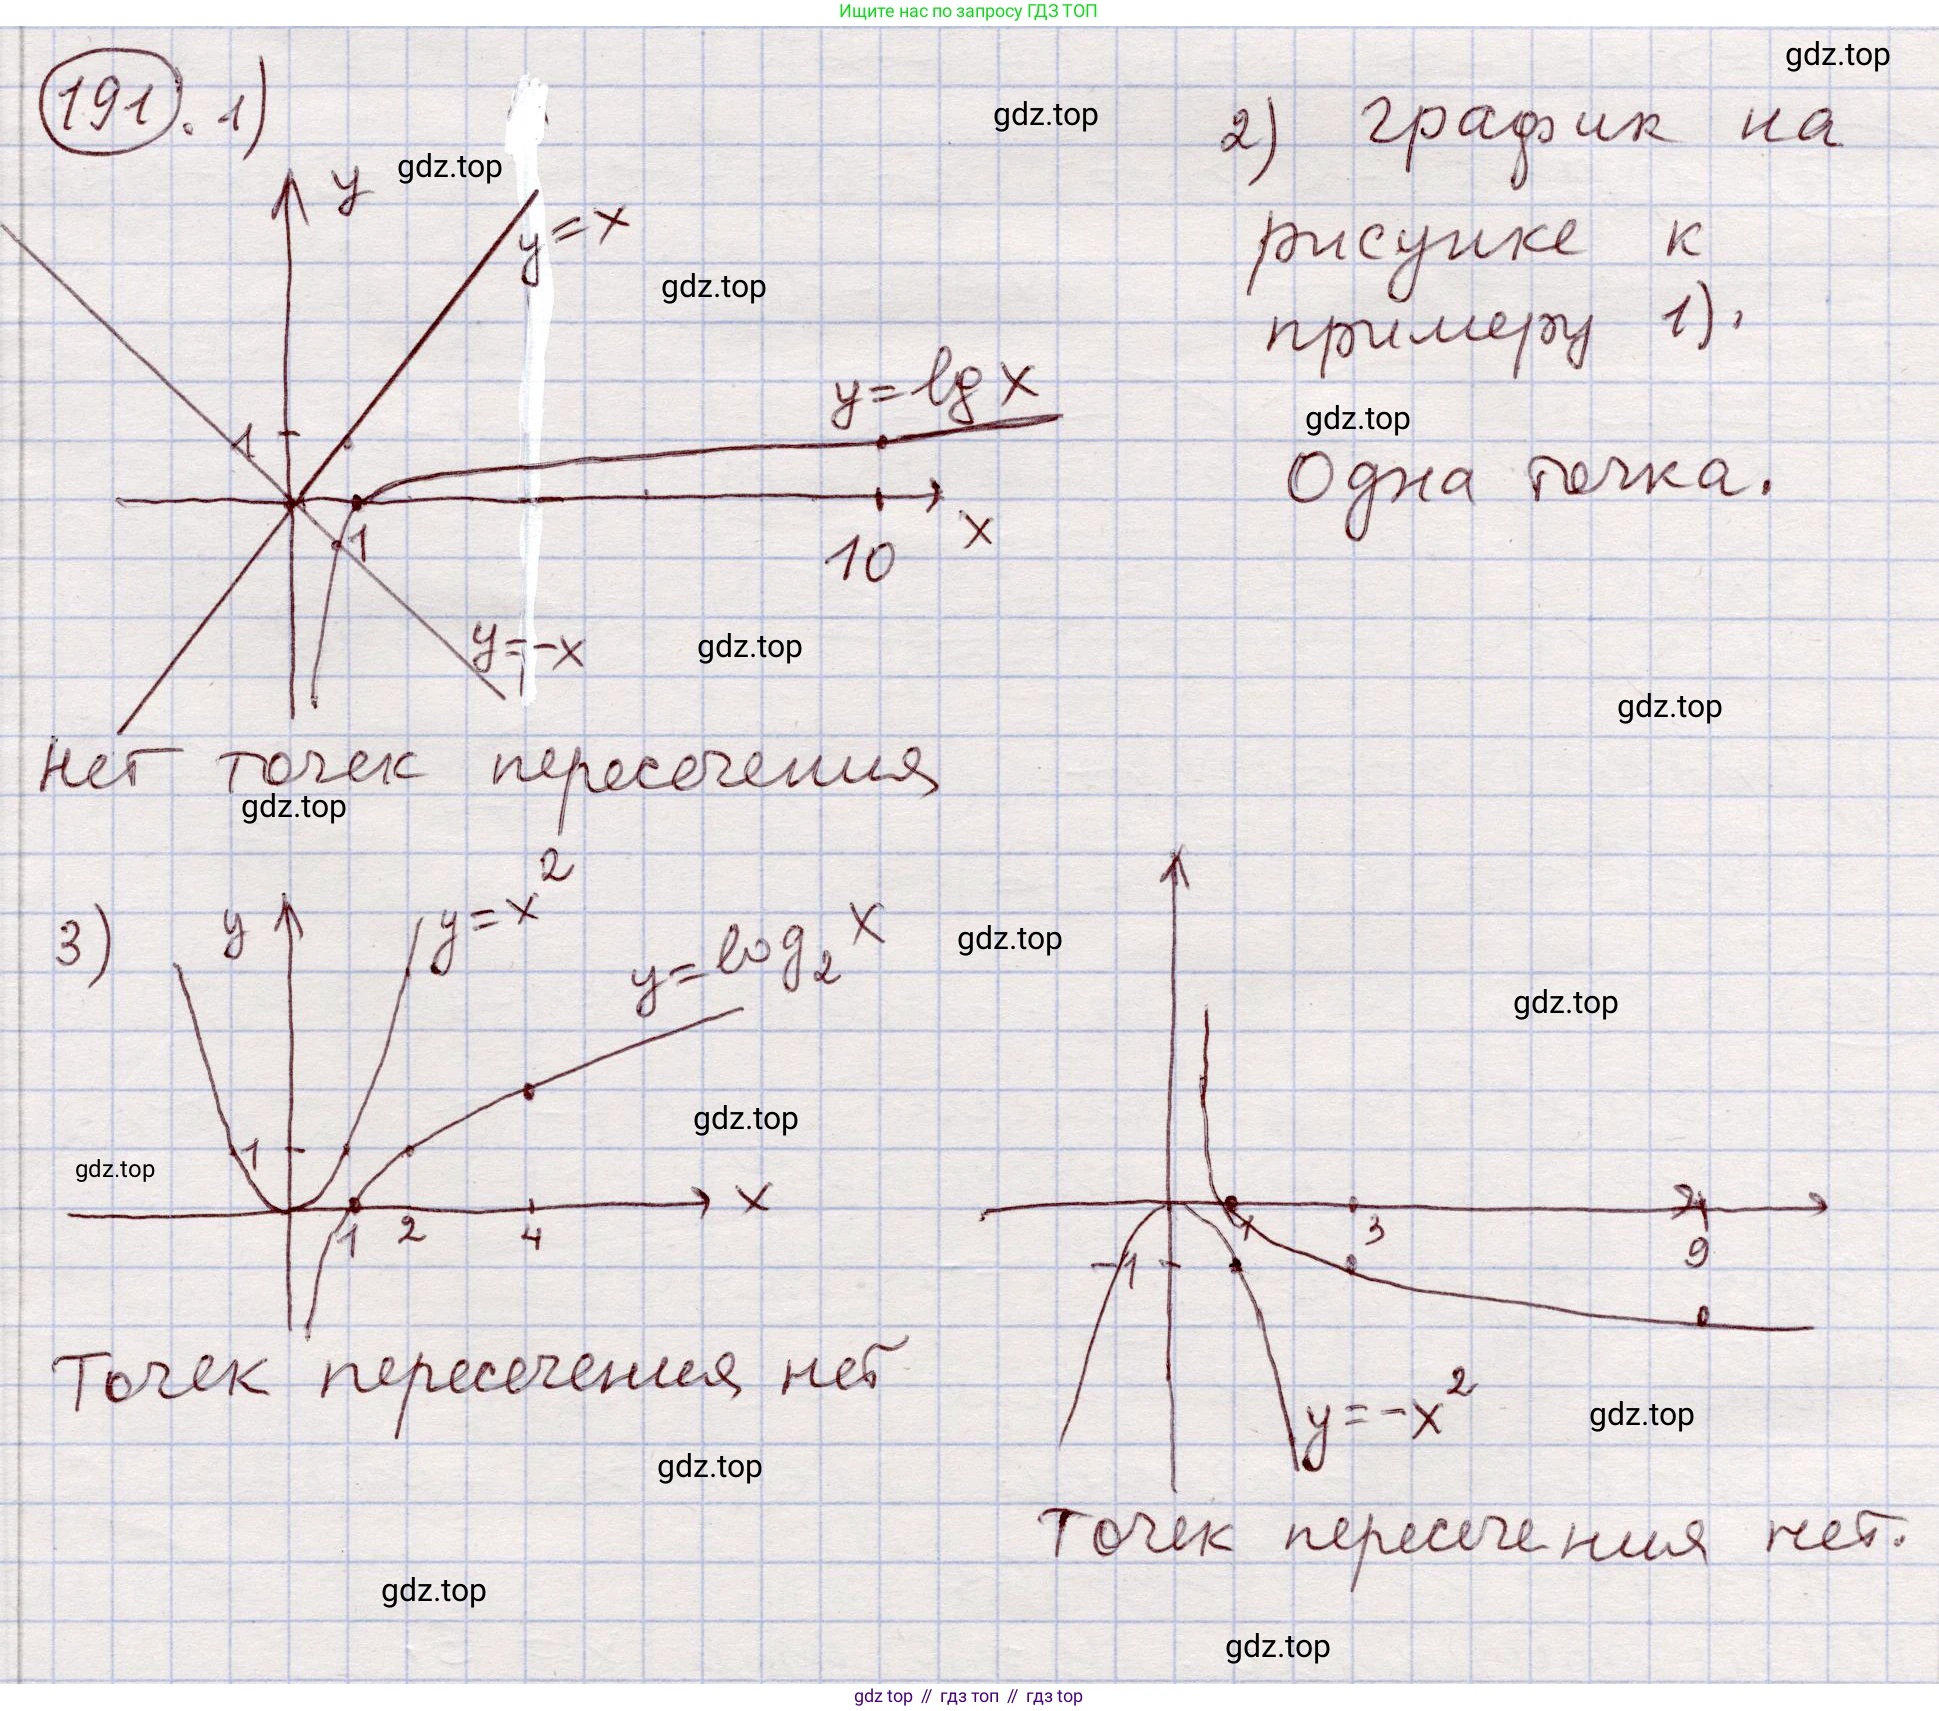 Ищите нас по запросу ГДЗ ТОП
gdz.top
191. 1)
gdz.top
2) график на
gdz.top
y
y=x
рисунке к
gdz.top
примеру 1).
y=lg x
gdz.top
1
Одна точка.
1
10
x
y=-x
gdz.top
gdz.top
Нет точек пересечения
gdz.top
3)
y
y=x²
y=log₂x
gdz.top
gdz.top
gdz.top
1
gdz.top
x
1 2 4
1 3 9
-1
Точек пересечения нет
y=-x²
gdz.top
gdz.top
Точек пересечения нет.
gdz.top
gdz.top
gdz top // гдз топ // гдз top